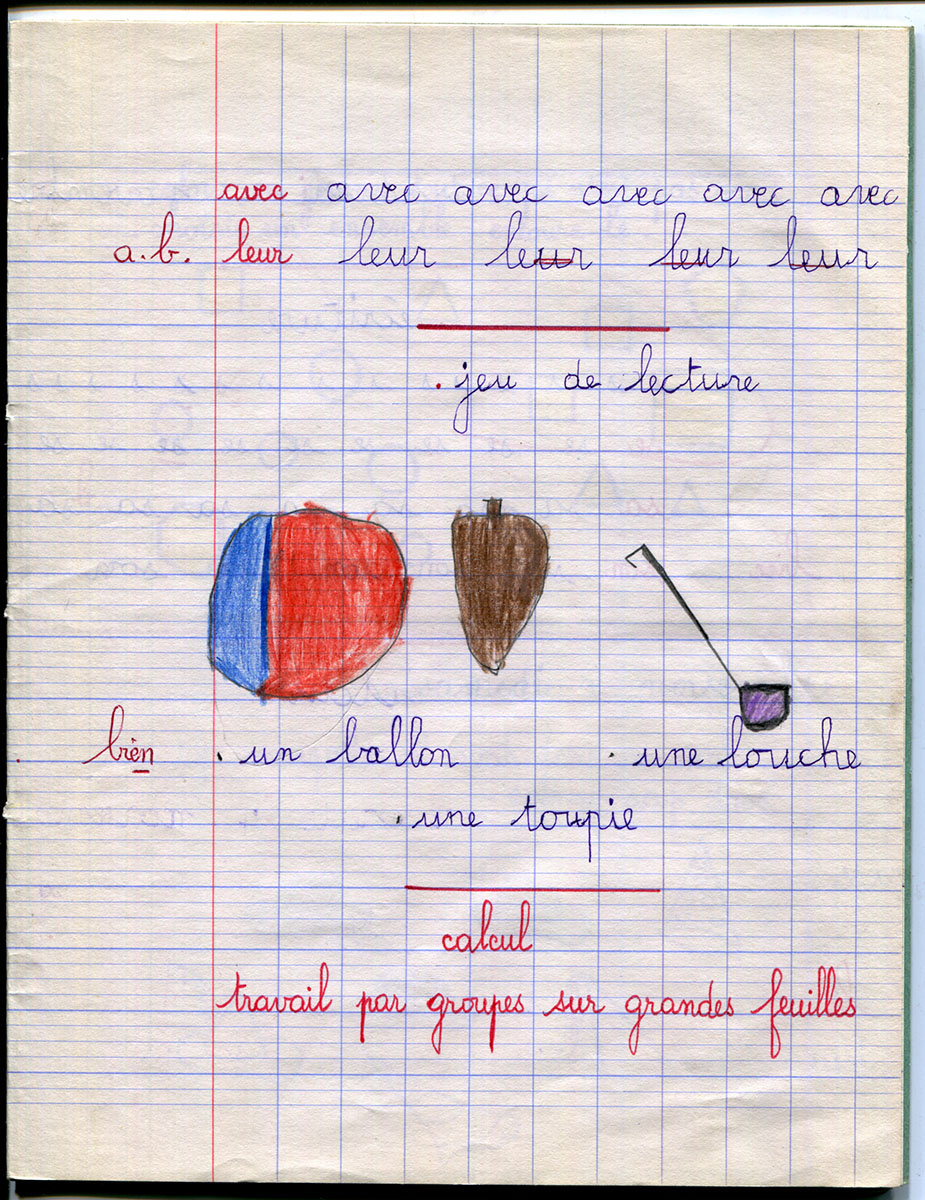 avec avec avec avec avec avec
a.b. leur leur leur leur leur
. jeu de lecture
. bien . un ballon . une louche
. une toupie
calcul
travail par groupes sur grandes feuilles